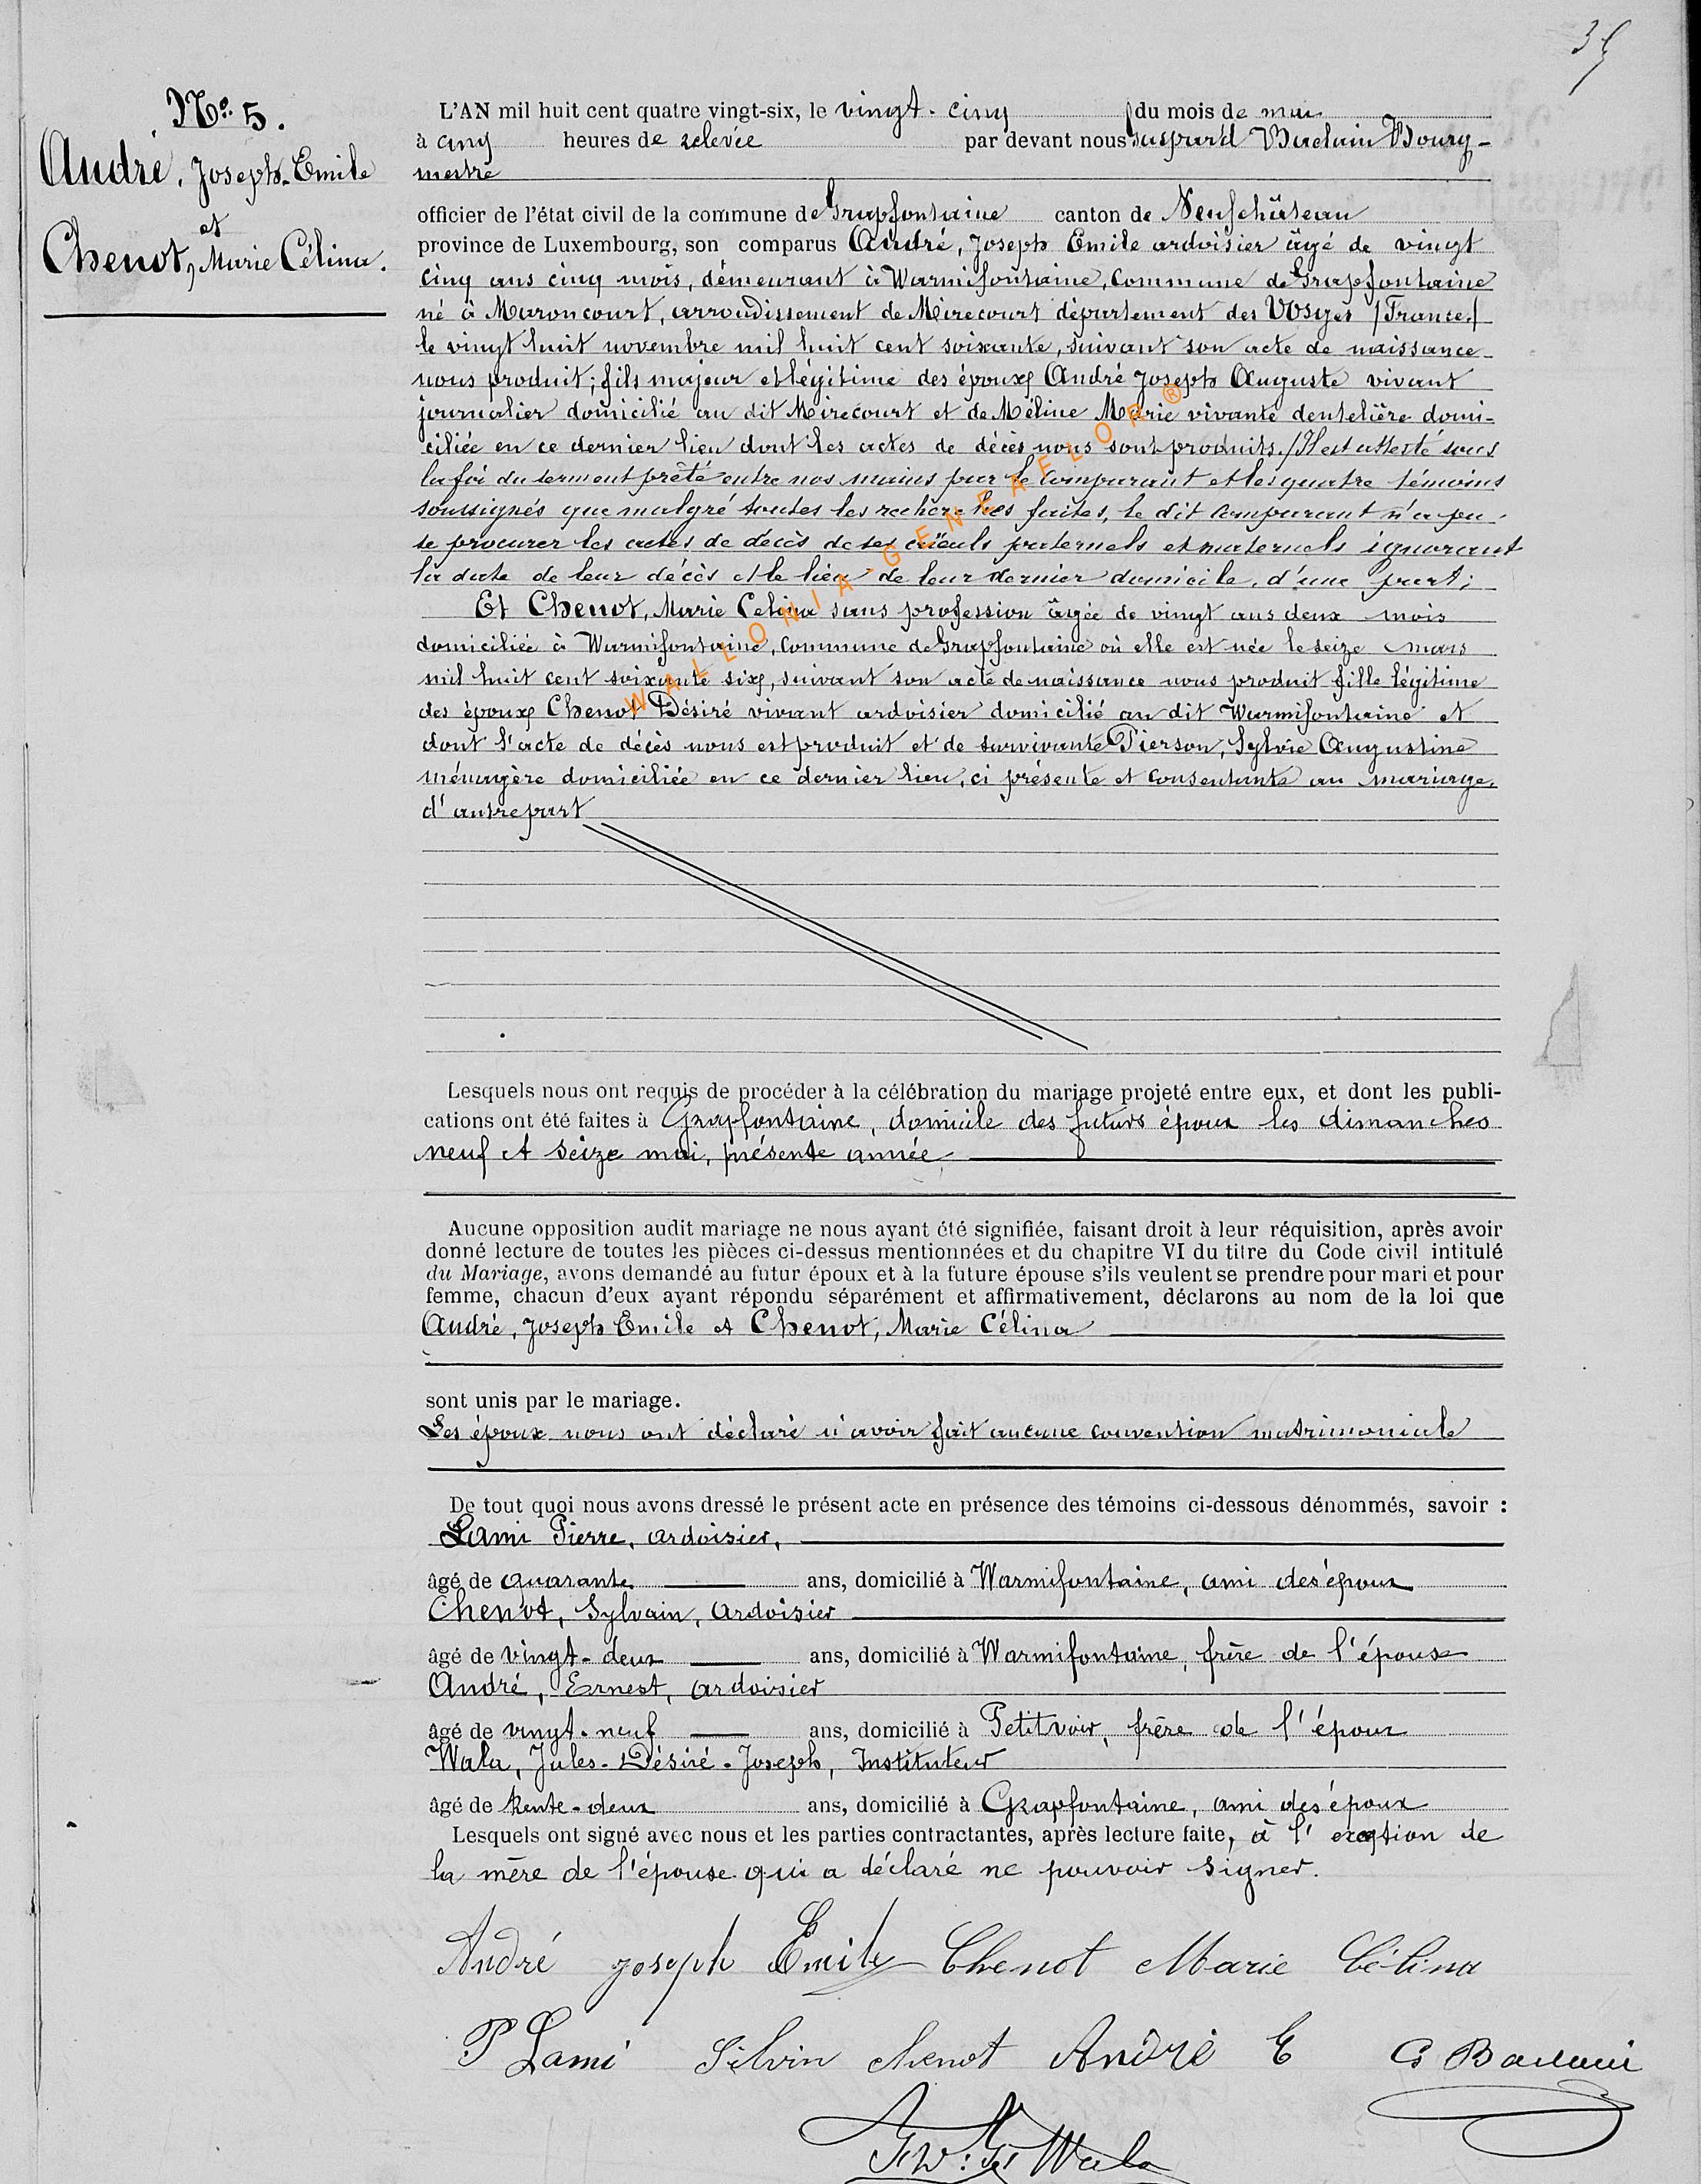 35
No. 5.
André, Joseph-Emile
et
Chenot, Marie Célina.
L'AN mil huit cent quatre vingt-six, le vingt-cinq du mois de mai
à cinq heures de relevée par devant nous Gaspard Baclain Bourg-
mestre
officier de l'état civil de la commune de Grapfontaine canton de Neufchâteau
province de Luxembourg, son comparus André, Joseph Emile ardoisier âgé de vingt
cinq ans cinq mois, demeurant à Warmifontaine, Commune de Grapfontaine
né à Maroncourt, arrondissement de Mirecourt département des Vosges (France)
le vingt huit novembre mil huit cent soixante, suivant son acte de naissance
nous produit; fils majeur et légitime des époux André Joseph Auguste vivant
journalier domicilié au dit Mirecourt et de Méline Marie vivante dentelière domi-
ciliée en ce dernier lieu dont les actes de décès nous sont produits. / Il est attesté sous
la foi du serment prêté entre nos mains par le comparant et les quatre témoins
soussignés que malgré toutes les recherches faites, le dit comparant n'a pu
se procurer les actes de décès de ses aïeuls paternels et maternels ignorant
la date de leur décès et le lieu de leur dernier domicile, d'une part;
Et Chenot, Marie Celina sans profession âgée de vingt ans deux mois
domiciliée à Warmifontaine, Commune de Grapfontaine où elle est née le seize mars
mil huit cent soixante six, suivant son acte de naissance nous produit fille légitime
des époux Chenot Désiré vivant ardoisier domicilié au dit Warmifontaine et
dont l'acte de décès nous est produit et de survivante Pierson, Sylvie Augustine
ménagère domiciliée en ce dernier lieu, ci présente et consentante au mariage,
d'autre part
WALLONIA-GENEALOR ®
Lesquels nous ont requis de procéder à la célébration du mariage projeté entre eux, et dont les publi-
cations ont été faites à Grapfontaine, domicile des futurs époux les dimanches
neuf et seize mai, présente année
Aucune opposition audit mariage ne nous ayant été signifiée, faisant droit à leur réquisition, après avoir
donné lecture de toutes les pièces ci-dessus mentionnées et du chapitre VI du titre du Code civil intitulé
du Mariage, avons demandé au futur époux et à la future épouse s'ils veulent se prendre pour mari et pour
femme, chacun d'eux ayant répondu séparément et affirmativement, déclarons au nom de la loi que
André, Joseph Emile et Chenot, Marie Célina
sont unis par le mariage.
Les époux nous ont déclaré n'avoir fait aucune convention matrimoniale
De tout quoi nous avons dressé le présent acte en présence des témoins ci-dessous dénommés, savoir :
Lami Pierre, ardoisier,
âgé de quarante ans, domicilié à Warmifontaine, ami des époux
Chenot, Sylvain, ardoisier
âgé de vingt-deux ans, domicilié à Warmifontaine, frère de l'épouse
André, Ernest, ardoisier
âgé de vingt-neuf ans, domicilié à Petitvoir, frère de l'époux
Wala, Jules-Désiré-Joseph, Instituteur
âgé de trente-deux ans, domicilié à Grapfontaine, ami des époux
Lesquels ont signé avec nous et les parties contractantes, après lecture faite, à l'exception de
la mère de l'épouse qui a déclaré ne pouvoir signer.
André joseph Emile Chenot Marie Célina
P Lami Silvin chenot André E G Baclain
Wala